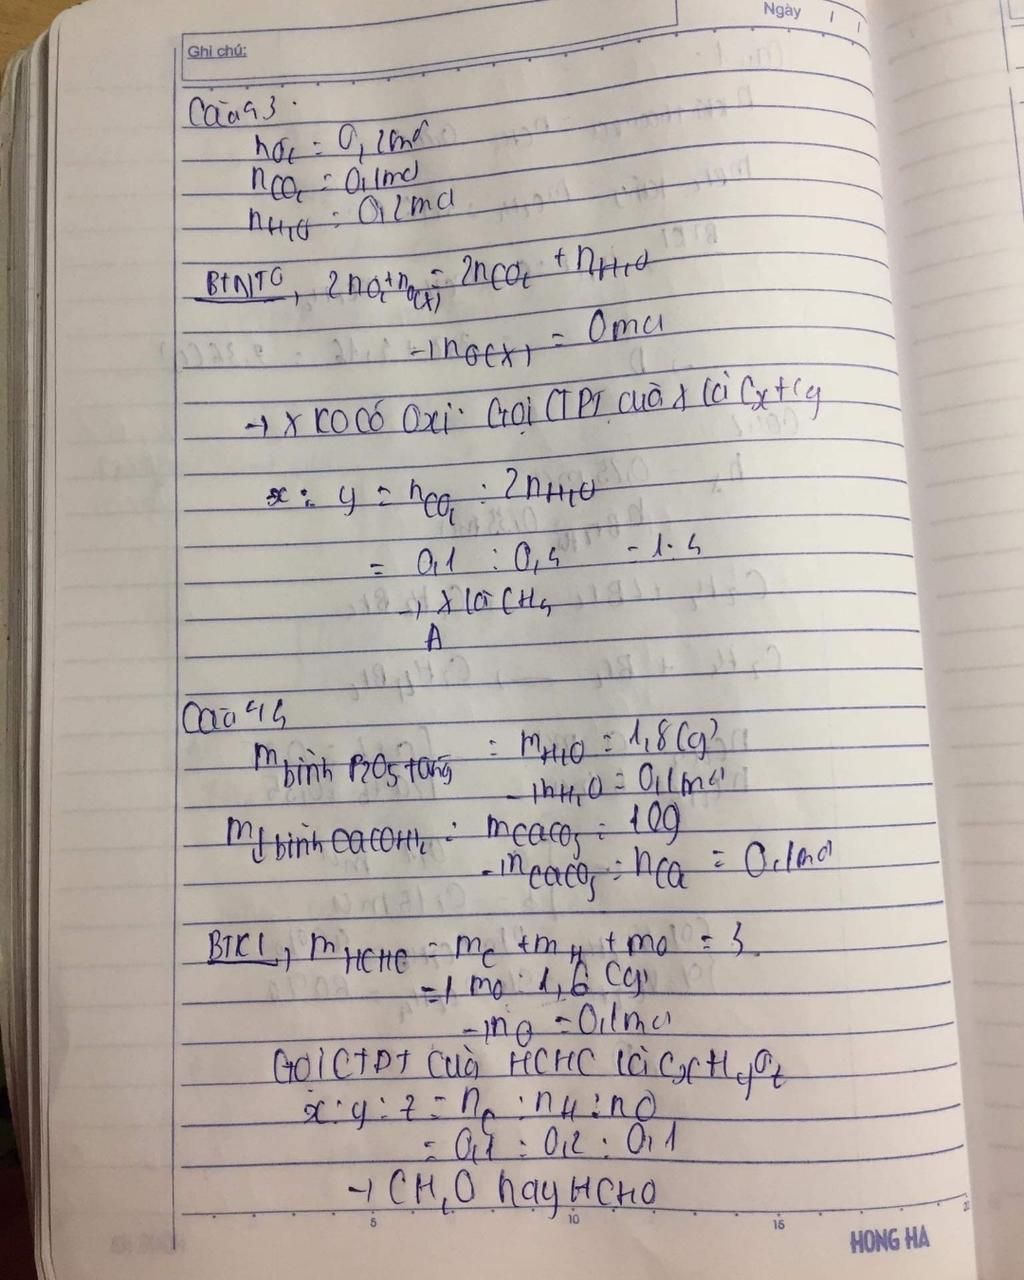 Ngày / /
Ghi chú:
Câu 43:
nO₂ = 0,2mol
nCO₂ = 0,1mol
nH₂O = 0,2mol
BTNTO, 2nO₂ + nO(X) = 2nCO₂ + nH₂O
→ nO(X) = 0mol
→ X KO CÓ Oxi. Gọi CTPT của X là CxHy
x : y = nCO₂ : 2nH₂O
= 0,1 : 0,4 = 1:4
→ X là CH₄
A
Câu 44
m bình P2O5 tăng = mH₂O = 1,8(g)
→ nH₂O = 0,1mol
m↓ bình Ca(OH)₂ = mCaCO₃ = 10g
→ nCaCO₃ = nCO₂ = 0,1mol
BTKL, mHCHC = mC + mH + mO = 3
→ mO = 1,6 (g)
→ nO = 0,1mol
Gọi CTPT của HCHC là CxHyOz
x : y : z = nC : nH : nO
= 0,1 : 0,2 : 0,1
→ CH₂O hay HCHO
5 10 15 20
HONG HA